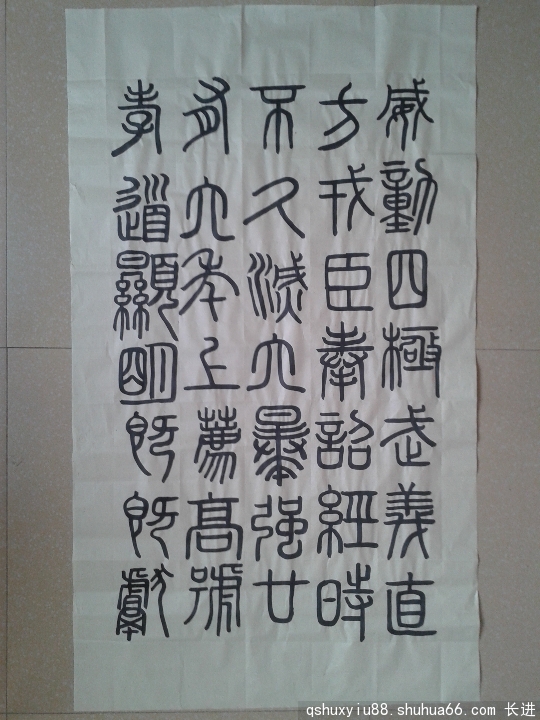 威動四極武義直
方戎臣奉詔經時
不久滅六暴强廿
有六年上薦高號
孝道顯明既既獻
qshuxyiu88.shuhua66.com 长进